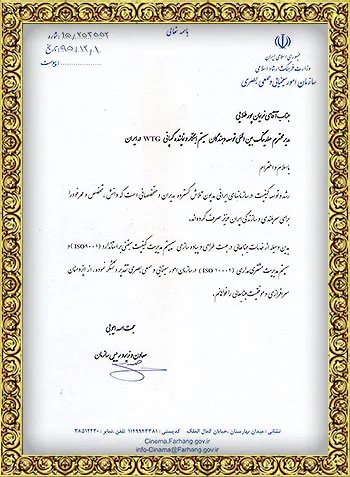 باسمه تعالی
شماره: ۱۵/۲۵۲۵۵۲
تاریخ: ۱۳۹۵/۱۲/۱۰
پیوست:
جمهوری اسلامی ایران
وزارت فرهنگ و ارشاد اسلامی
سازمان امور سینمایی و سمعی بصری
جناب آقای
مدیر محترم هلدینگ بین المللی توسعه دهندگان سیستم ابتکار و نماینده کمپانی WTG در ایران
با سلام و احترام
رشد و توسعه کیفیت در سازمانهای ایرانی مدیون تلاش گسترده مدیران و متخصصانی است که دانش، تخصص و عمر خود را
برای سربلندی و سازندگی ایران عزیز صرف کرده اند.
بدین وسیله از خدمات جنابعالی در جهت طراحی و پیاده سازی سیستم مدیریت کیفیت مبتنی بر استاندارد (ISO ۹۰۰۱) و
سیستم مدیریت مشتری مداری (ISO ۱۰۰۰۲) در سازمان امور سینمایی و سمعی بصری تقدیر و تشکر نموده، از ایزد منان
سرافرازی و موفقیت جنابعالی را خواهانم.
حجت اله ایوبی
معاون وزیر و رییس سازمان
نشانی: میدان بهارستان، خیابان کمال الملک کدپستی: ۱۱۴۹۹۴۳۳۸۱ تلفن: ۳۸۵۱۲۴۳۰
Cinema.Farhang.gov.ir
info-Cinama@Farhang.gov.ir